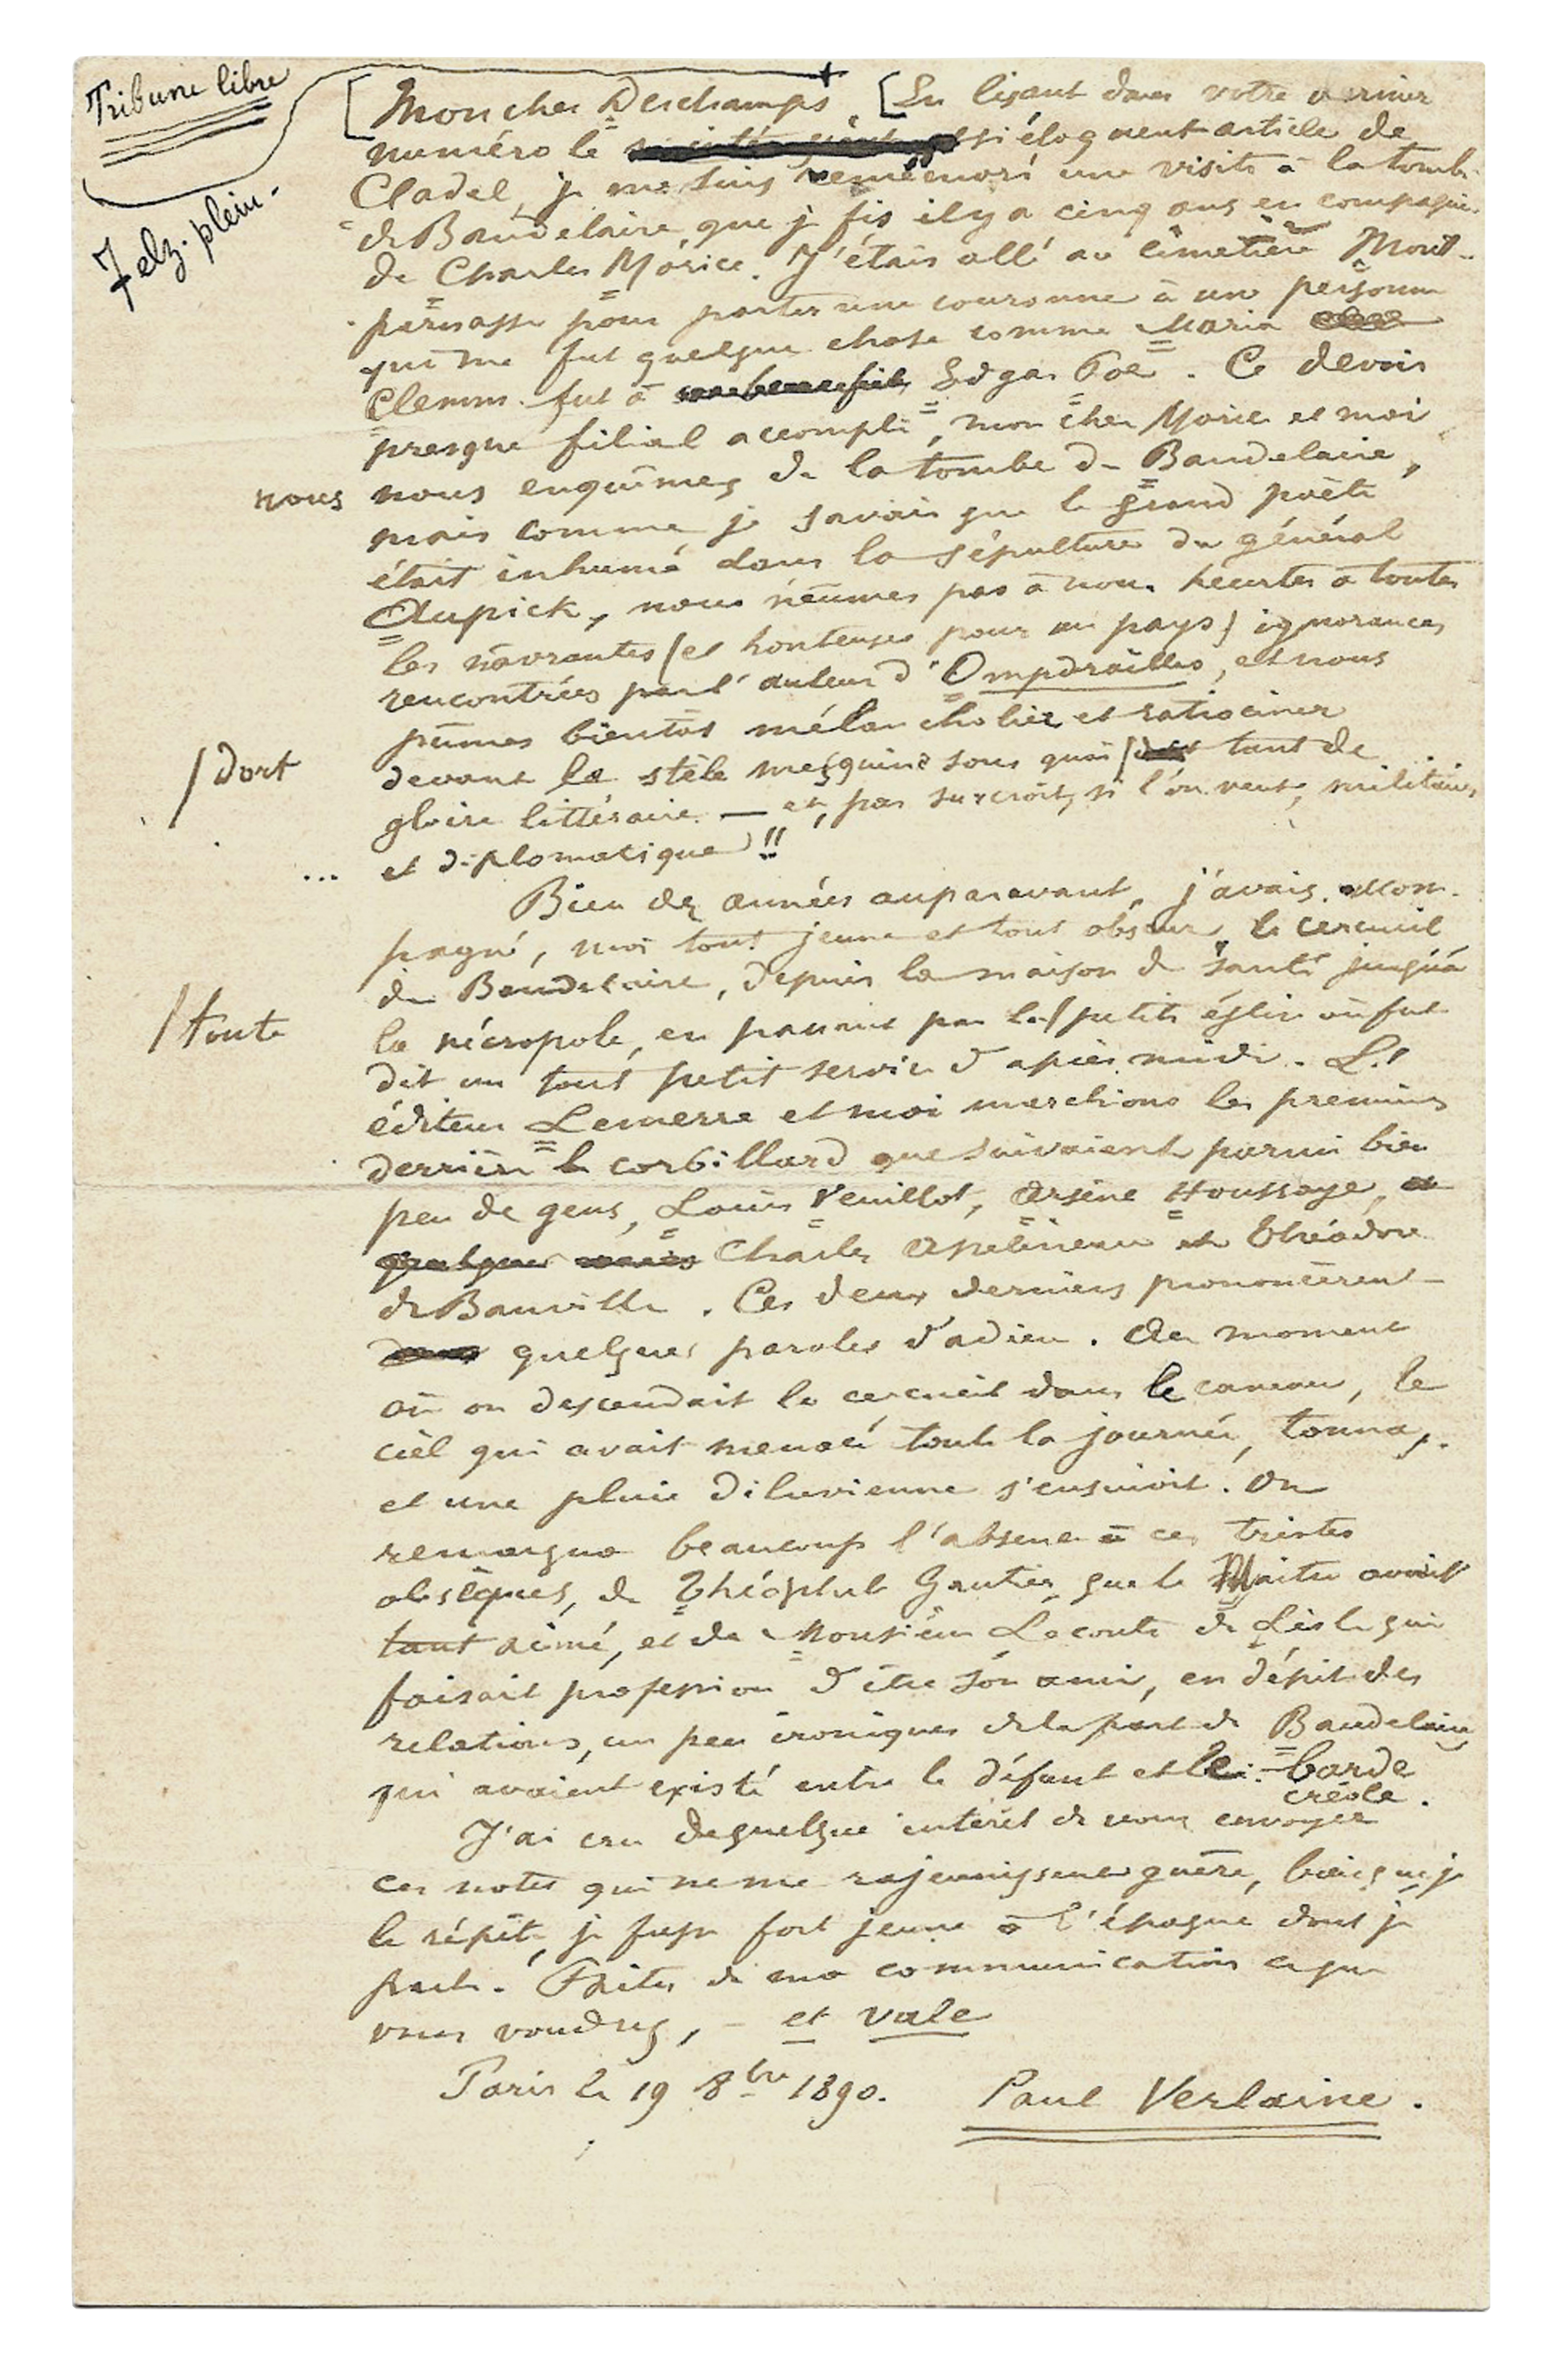 Tribune libre
7 elz. plein.
[Mon cher Deschamps [En lisant dans votre dernier
numéro le si éloquent article de
Cladel, je me suis remémoré une visite à la tombe
de Baudelaire, que je fis il y a cinq ans en compagnie
de Charles Morice. J'étais allé au cimetière Mont-
parnasse pour porter une couronne à une personne
qui me fut quelque chose comme Maria
Clemm fut à Edgar Poe. Ce devoir
presque filial accompli, mon cher Morice et moi
nous
nous enquîmes de la tombe de Baudelaire,
mais comme je savais que le grand poète
était inhumé dans la sépulture du général
Aupick, nous n'eûmes pas à nous heurter à toutes
les navrantes (et honteuses pour un pays) ignorances
rencontrées par l'auteur d'Ompdrailles, et nous
pûmes bientôt mélancholier et ratiociner
/ dort
devant la stèle mesquine sous quoi / tant de
gloire littéraire — et, par surcroît, si l'on veut, militaire
... et diplomatique !!
Bien des années auparavant, j'avais accom-
pagné, moi tout jeune et tout obscur, le cercueil
de Baudelaire, depuis la maison de santé jusqu'à
/ toute
la nécropole, en passant par la / petite église où fut
dit un tout petit service d'après midi. L'
éditeur Lemerre et moi marchions les premiers
derrière le corbillard que suivaient parmi bien
peu de gens, Louis Veuillot, Arsène Houssaye,
Charles Asselineau et Théodore
de Banville. Ces deux derniers prononcèrent
quelques paroles d'adieu. Au moment
où on descendait le cercueil dans le caveau, le
ciel qui avait menacé toute la journée, tonna,
et une pluie diluvienne s'ensuivit. On
remarqua beaucoup l'absence à ces tristes
obsèques, de Théophile Gautier, que le Maître avait
tant aimé, et de Monsieur Leconte de Lisle qui
faisait profession d'être son ami, en dépit des
relations, un peu ironiques de la part de Baudelaire
qui avaient existé entre le défunt et le barde
créole.
J'ai cru de quelque intérêt de vous envoyer
ces notes qui ne me rajeunissent guère, bien que je
le répète, je fusse fort jeune à l'époque dont je
parle. Faites de ma communication ce que
vous voudrez, – et vale
Paris le 19 8bre 1890. Paul Verlaine.